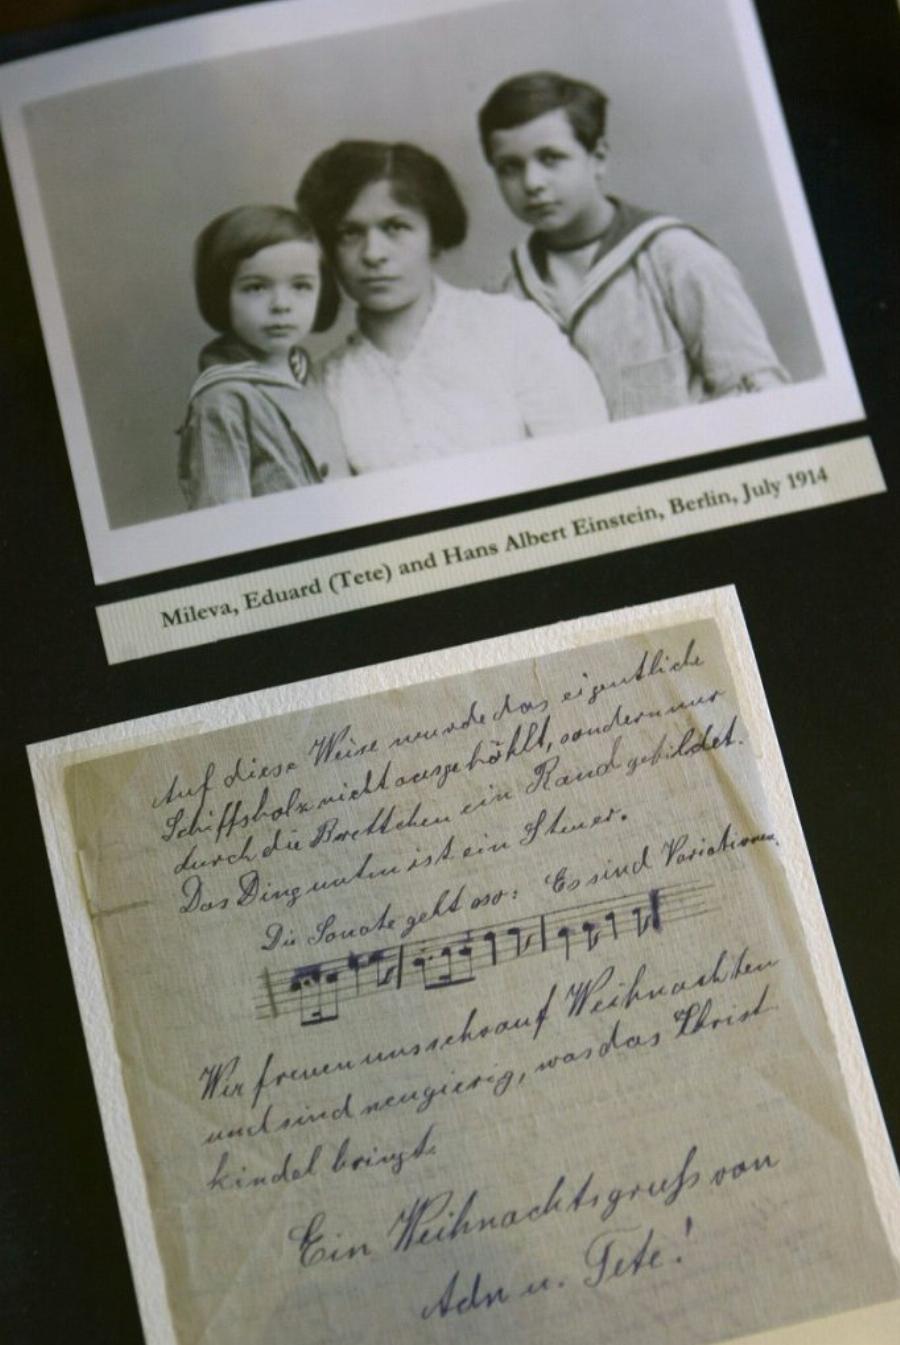 Mileva, Eduard (Tete) and Hans Albert Einstein, Berlin, July 1914
Auf diese Weise wurde das eigentliche
Schiffsholz nicht ausgehöhlt, sondern nur
durch die Brettchen ein Rand gebildet.
Das Ding unten ist ein Steuer.
Die Sonate geht so: Es sind Variationen.
Wir freuen uns sehr auf Weihnachten
und sind neugierig, was das Christ
kindel bringt.
Ein Weihnachtsgruss von
Adn u. Tete!